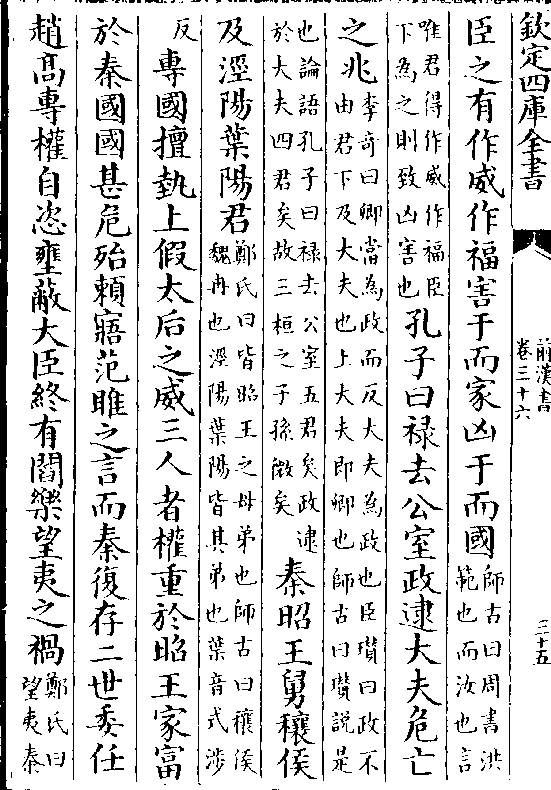 欽定四庫全書
前漢書
卷三十六
三十五
臣之有作威作福害于而家凶于而國師古曰周書洪範也而汝也言
唯君得作威作福臣下為之則致凶害也孔子曰禄去公室政逮大夫危亡
之兆李奇曰卿當為政而反大夫為政也臣瓉曰政不由君下及大夫也上大夫即卿也師古曰瓉説是
也論語孔子曰禄去公室五君矣政逮於大夫四君矣故三桓之子孫微矣秦昭王舅穰侯
及涇陽葉陽君鄭氏曰皆昭王之母弟也師古曰穰侯魏冉也涇陽葉陽皆其弟也葉音式涉
反專國擅埶上假太后之威三人者權重於昭王家富
於秦國國甚危殆頼寤范雎之言而秦復存二世委任
趙髙專權自恣壅蔽大臣終有閻樂望夷之禍鄭氏曰望夷秦